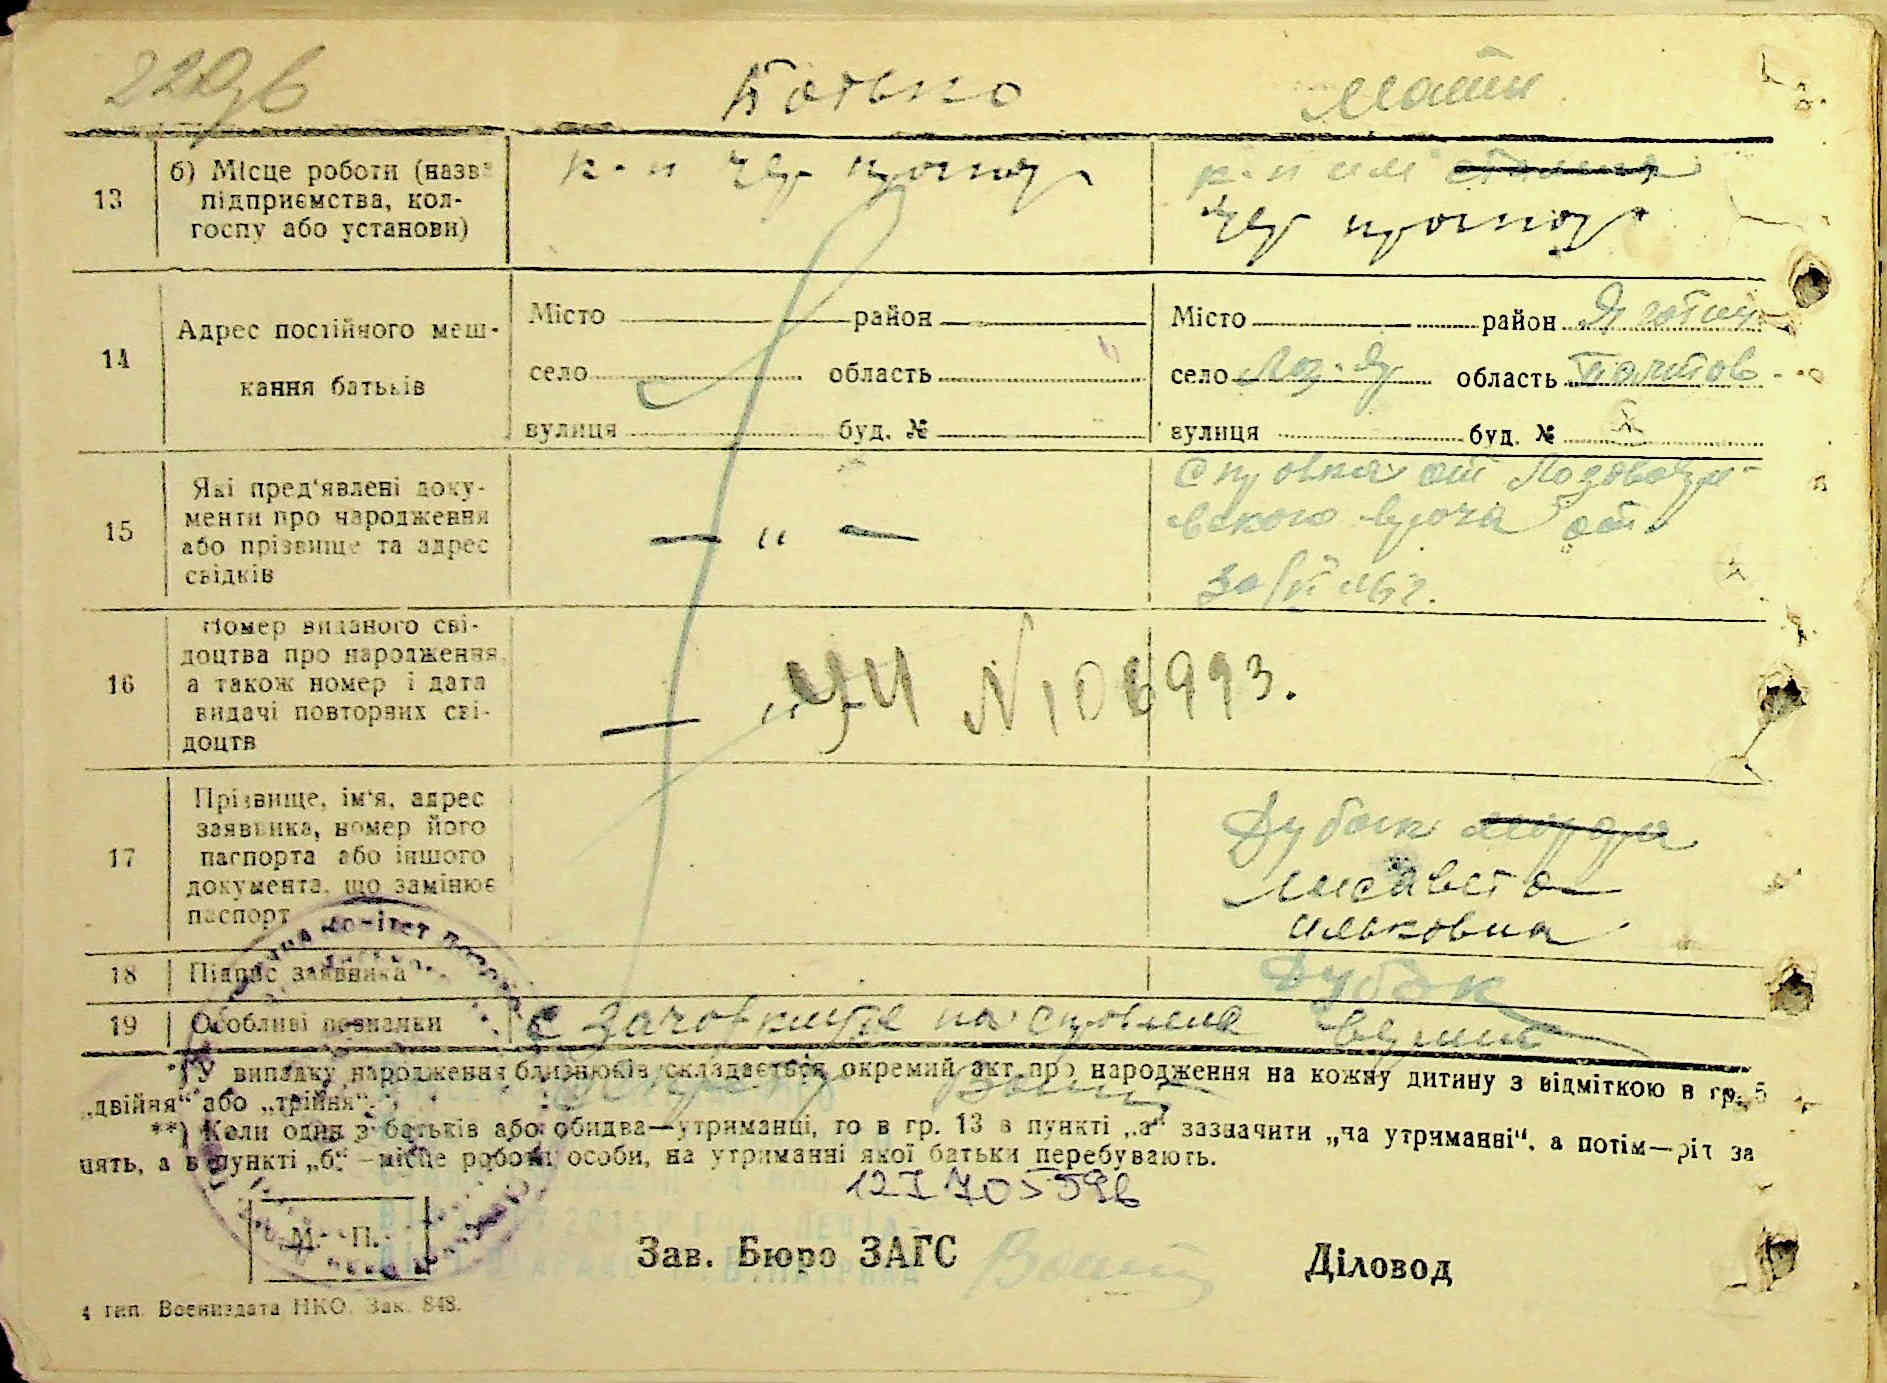 Батько Мати
13 б) Місце роботи (назва підприємства, колгоспу або установи)
к-п чер прапор
к-п им
чер прапор
14 Адрес постійного мешкання батьків
Місто район
село область
вулиця буд. №
Місто район Яготин
село Лоз-Яр область Полтов
вулиця буд. №
15 Які пред'явлені документи про народження або прізвище та адрес свідків
— " —
Справка от Лозовояр-
вского врача от
16 Номер виданого свідоцтва про народження, а також номер і дата видачі повторних свідоцтв
— "
УЧ N 106993.
17 Прізвище, ім'я, адрес заявника, номер його паспорта або іншого документа, що замінює паспорт
Дубок
Лисавета
Ильковна
18 Підпис заявника
Дубок
19 Особливі познаки
*) У випадку народження близнюків складається окремий акт про народження на кожну дитину з відміткою в гр. 5
„двійня“ або „трійня“.
**) Коли один з батьків або обидва—утриманці, то в гр. 13 в пункті „а“ зазначити „на утриманні“, а потім—ріт за
нять, а в пункті „б“ —місце роботи особи, на утриманні якої батьки перебувають.
М. П.
Зав. Бюро ЗАГС
Діловод
4 тип. Воениздата НКО. Зак. 848.